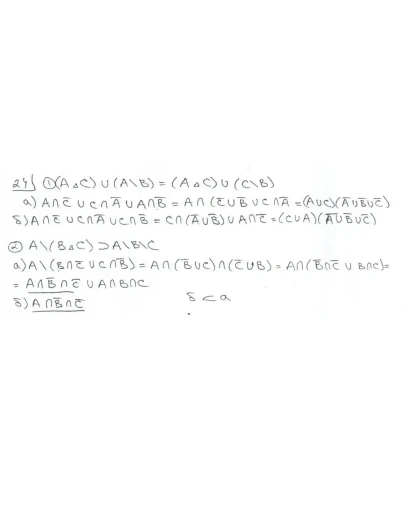 24) ① (A △ C) ∪ (A \ B) = (A △ C) ∪ (C \ B)
a) A ∩ C̅ ∪ C ∩ A̅ ∪ A ∩ B̅ = A ∩ (C̅ ∪ B̅ ∪ C ∩ A̅ = (A ∪ C)(A̅ ∪ B̅ ∪ C̅)
б) A ∩ C̅ ∪ C ∩ A̅ ∪ C ∩ B̅ = C ∩ (A̅ ∪ B̅) ∪ A ∩ C̅ = (C ∪ A)(A̅ ∪ B̅ ∪ C̅)
② A \ (B △ C) ⊃ A \ B \ C
a) A \ (B ∩ C̅ ∪ C ∩ B̅) = A ∩ (B̅ ∪ C) ∩ (C̅ ∪ B) = A ∩ (B̅ ∩ C̅ ∪ B ∩ C) =
= A ∩ B̅ ∩ C̅ ∪ A ∩ B ∩ C
б) A ∩ B̅ ∩ C̅ б ⊂ a